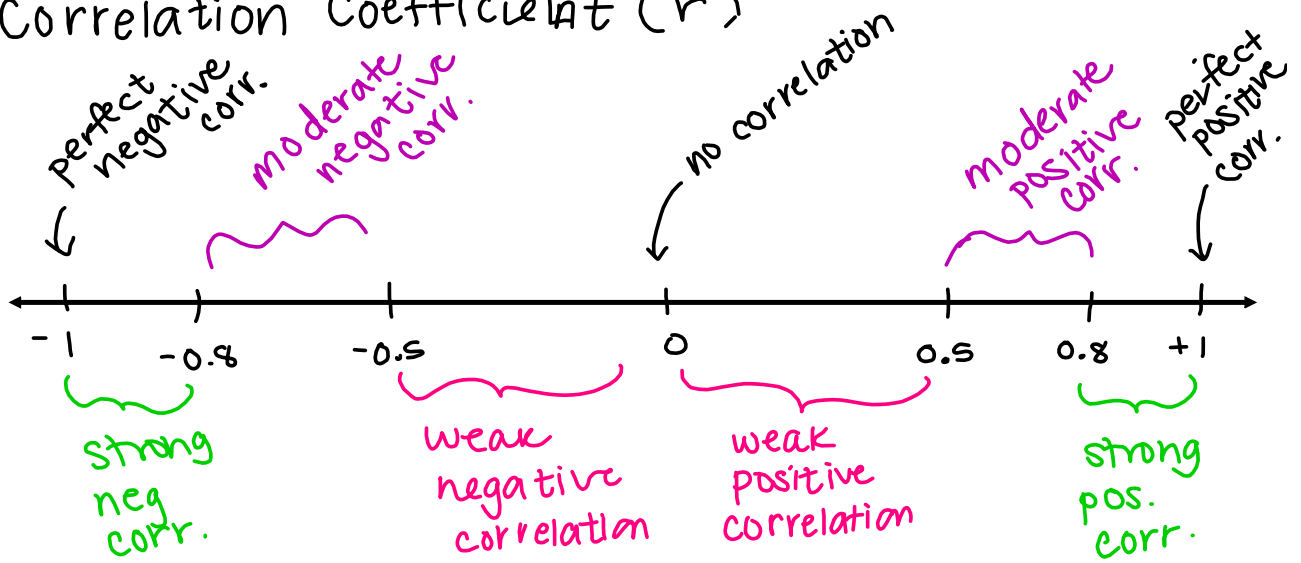 Correlation Coefficient (r)
perfect
negative
corr.
moderate
negative
corr.
no correlation
moderate
positive
corr.
perfect
positive
corr.
-1
-0.8
-0.5
0
0.5
0.8
+1
strong
neg
corr.
weak
negative
correlation
weak
positive
correlation
strong
pos.
corr.